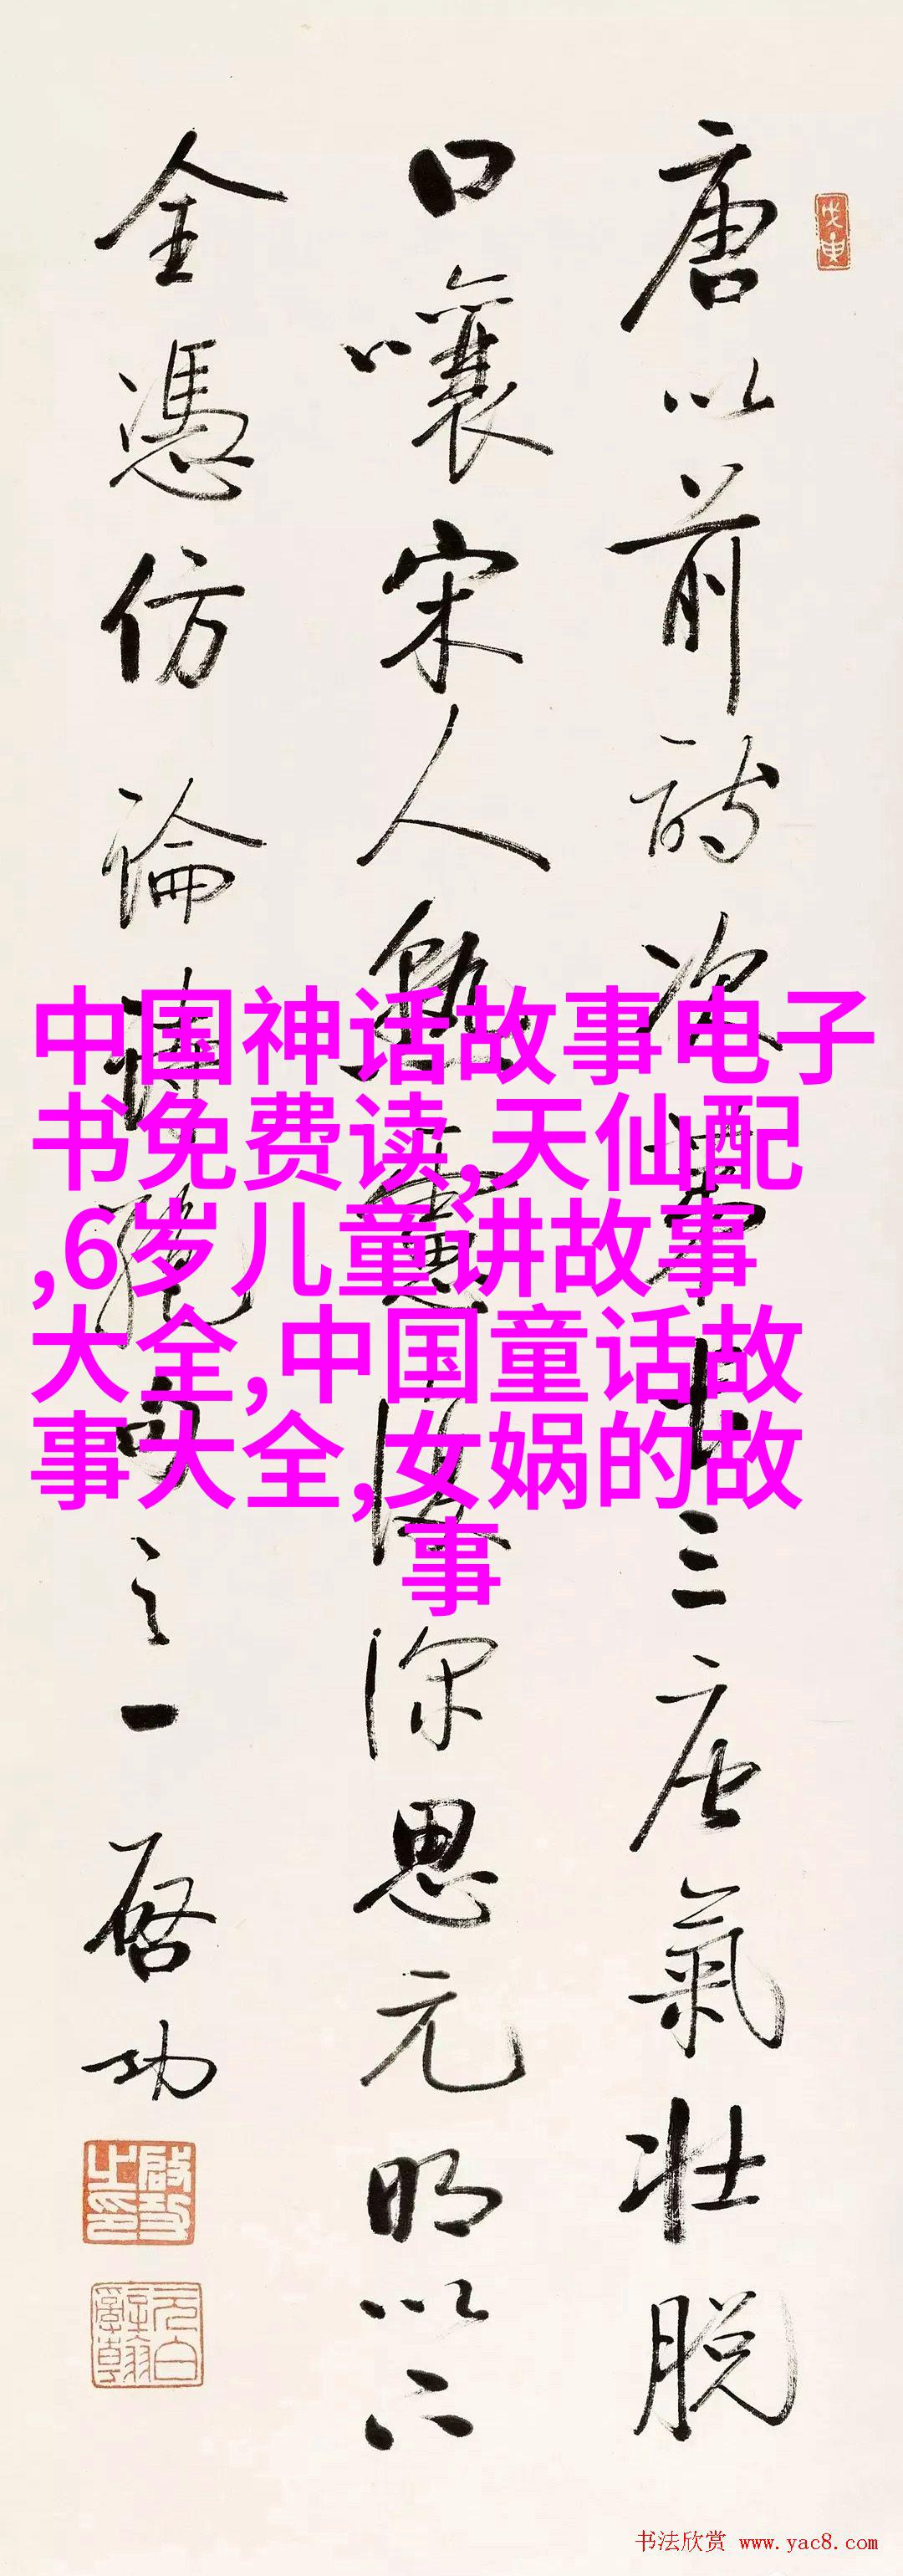 唐以前詩次第長三唐氣壯脫
口嚷宋人熟慮深思元明以下
全憑仿 論詩絕句之一 启功
啟功之印
中国神话故事电子
书免费读,天仙配
,6岁儿童讲故事
大全,中国童话故
事大全,女娲的故
事
书法欣赏 www.yac8.com